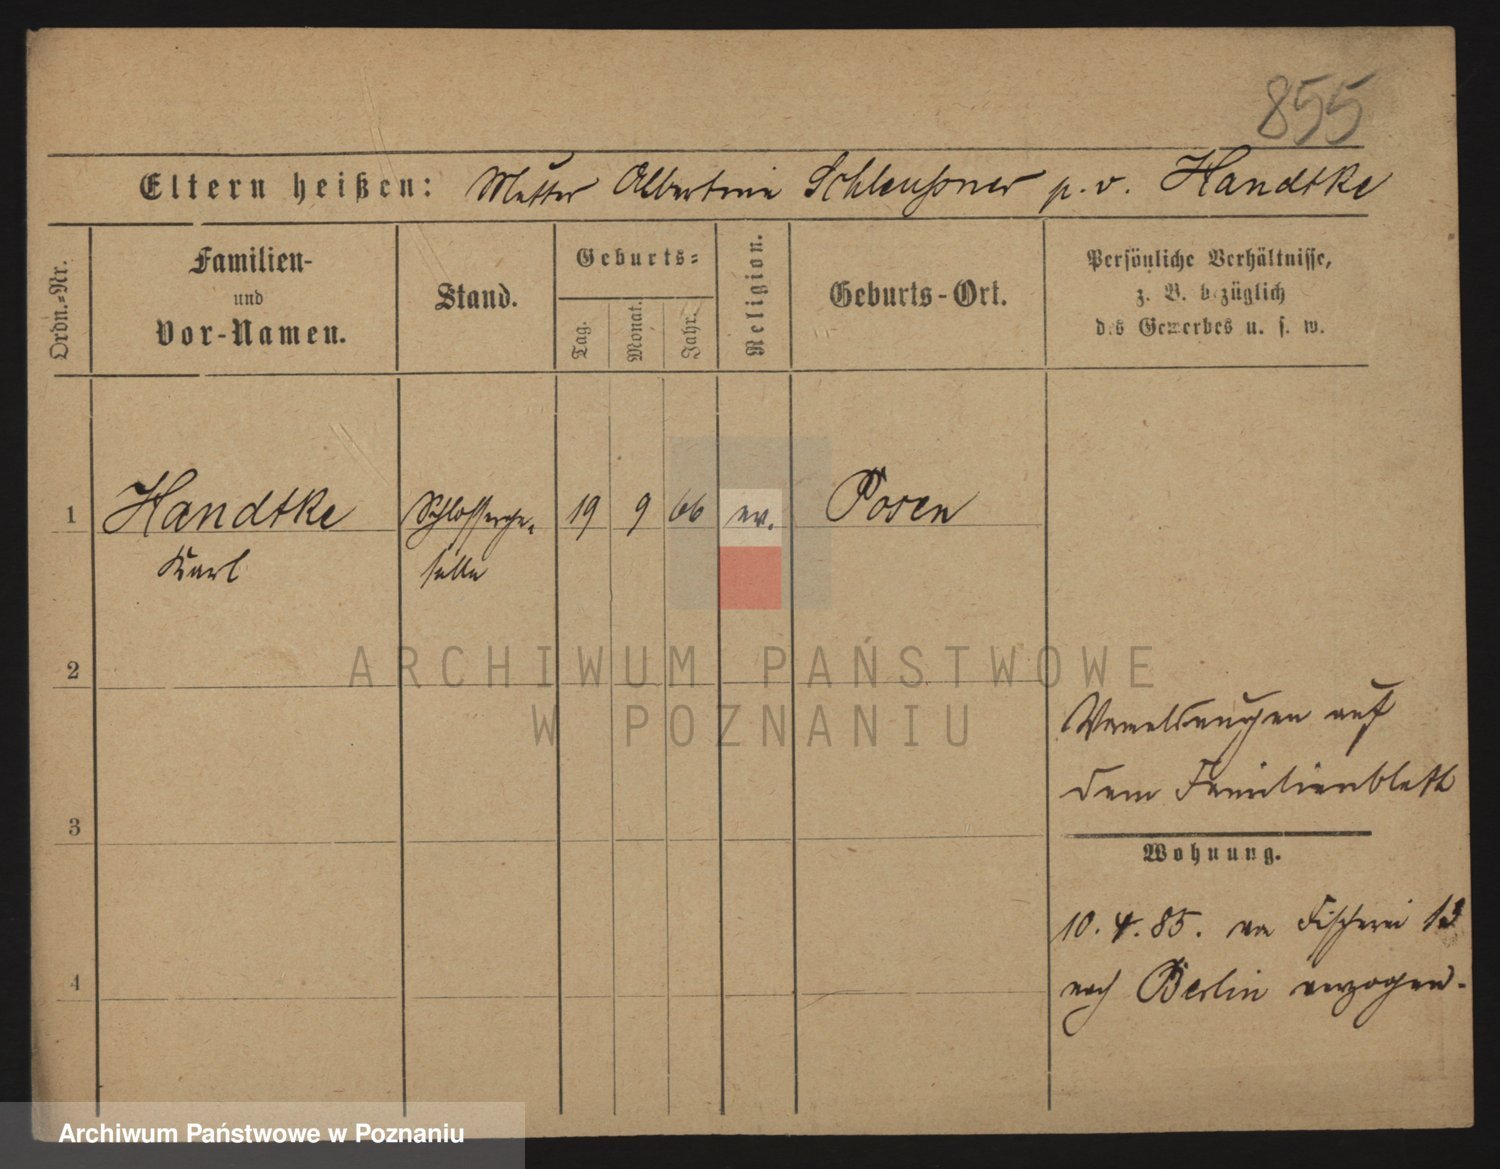 855
Eltern heißen: Mutter Albertine Schleußner p. v. Handtke
Ordn.=Nr.
Familien-
und
Vor-Namen.
Stand.
Geburts=
Tag.
Monat.
Jahr.
Religion.
Geburts-Ort.
Persönliche Verhältnisse,
z. B. bezüglich
des Gewerbes u. s. w.
1 Handtke Schlosserge- 19 9 66 ev. Posen
Karl selle
2
3
4
auf
dem Familienblatt
Wohnung.
10. 4. 85. Fischerei 13
nach Berlin verzogen.
ARCHIWUM PAŃSTWOWE
W POZNANIU
Archiwum Państwowe w Poznaniu